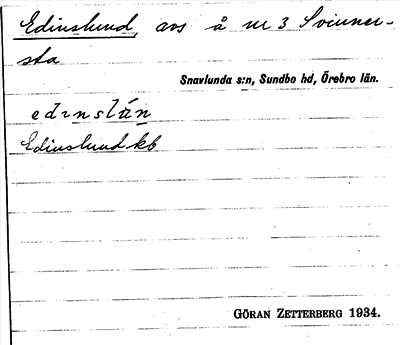 Edinslund, avs å nr 3 Svinner-
sta
Snavlunda s:n, Sundbo hd, Örebro län.
edɪnslún
Edinslund kb
GÖRAN ZETTERBERG 1934.